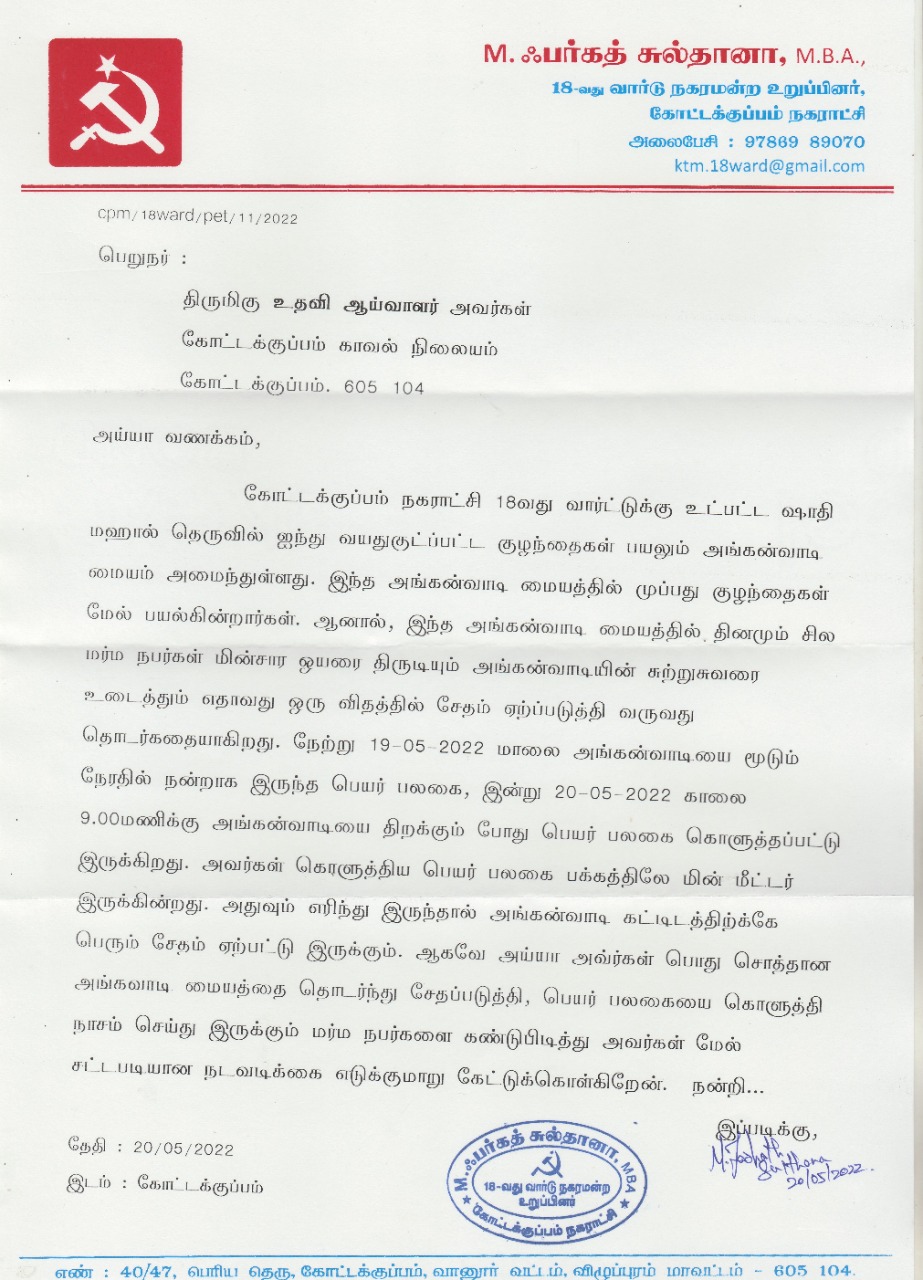 M. ஃபர்கத் சுல்தானா, M.B.A.,
18-வது வார்டு நகரமன்ற உறுப்பினர்,
கோட்டக்குப்பம் நகராட்சி
அலைபேசி : 97869 89070
ktm.18ward@gmail.com
cpm/18ward/pet/11/2022
பெறுநர் :
திருமிகு உதவி ஆய்வாளர் அவர்கள்
கோட்டக்குப்பம் காவல் நிலையம்
கோட்டக்குப்பம். 605 104
அய்யா வணக்கம்,
கோட்டக்குப்பம் நகராட்சி 18வது வார்ட்டுக்கு உட்பட்ட ஷாதி
மஹால் தெருவில் ஐந்து வயதுகுட்ப்பட்ட குழந்தைகள் பயலும் அங்கன்வாடி
மையம் அமைந்துள்ளது. இந்த அங்கன்வாடி மையத்தில் முப்பது குழந்தைகள்
மேல் பயல்கின்றார்கள். ஆனால், இந்த அங்கன்வாடி மையத்தில் தினமும் சில
மர்ம நபர்கள் மின்சார ஒயரை திருடியும் அங்கன்வாடியின் சுற்றுசுவரை
உடைத்தும் எதாவது ஒரு விதத்தில் சேதம் ஏற்ப்படுத்தி வருவது
தொடர்கதையாகிறது. நேற்று 19-05-2022 மாலை அங்கன்வாடியை மூடும்
நேரதில் நன்றாக இருந்த பெயர் பலகை, இன்று 20-05-2022 காலை
9.00மணிக்கு அங்கன்வாடியை திறக்கும் போது பெயர் பலகை கொளுத்தப்பட்டு
இருக்கிறது. அவர்கள் கொளுத்திய பெயர் பலகை பக்கத்திலே மின் மீட்டர்
இருக்கின்றது. அதுவும் எரிந்து இருந்தால் அங்கன்வாடி கட்டிடத்திற்க்கே
பெரும் சேதம் ஏற்பட்டு இருக்கும். ஆகவே அய்யா அவ்ர்கள் பொது சொத்தான
அங்கவாடி மையத்தை தொடர்ந்து சேதப்படுத்தி, பெயர் பலகையை கொளுத்தி
நாசம் செய்து இருக்கும் மர்ம நபர்களை கண்டுபிடித்து அவர்கள் மேல்
சட்டபடியான நடவடிக்கை எடுக்குமாறு கேட்டுக்கொள்கிறேன். நன்றி...
இப்படிக்கு,
20/05/2022
தேதி : 20/05/2022
இடம் : கோட்டக்குப்பம்
M.ஃபர்கத் சுல்தானா, MBA
18-வது வார்டு நகரமன்ற
உறுப்பினர்
கோட்டக்குப்பம் நகராட்சி
எண் : 40/47, பெரிய தெரு, கோட்டக்குப்பம், வானூர் வட்டம், விழுப்புரம் மாவட்டம் - 605 104.